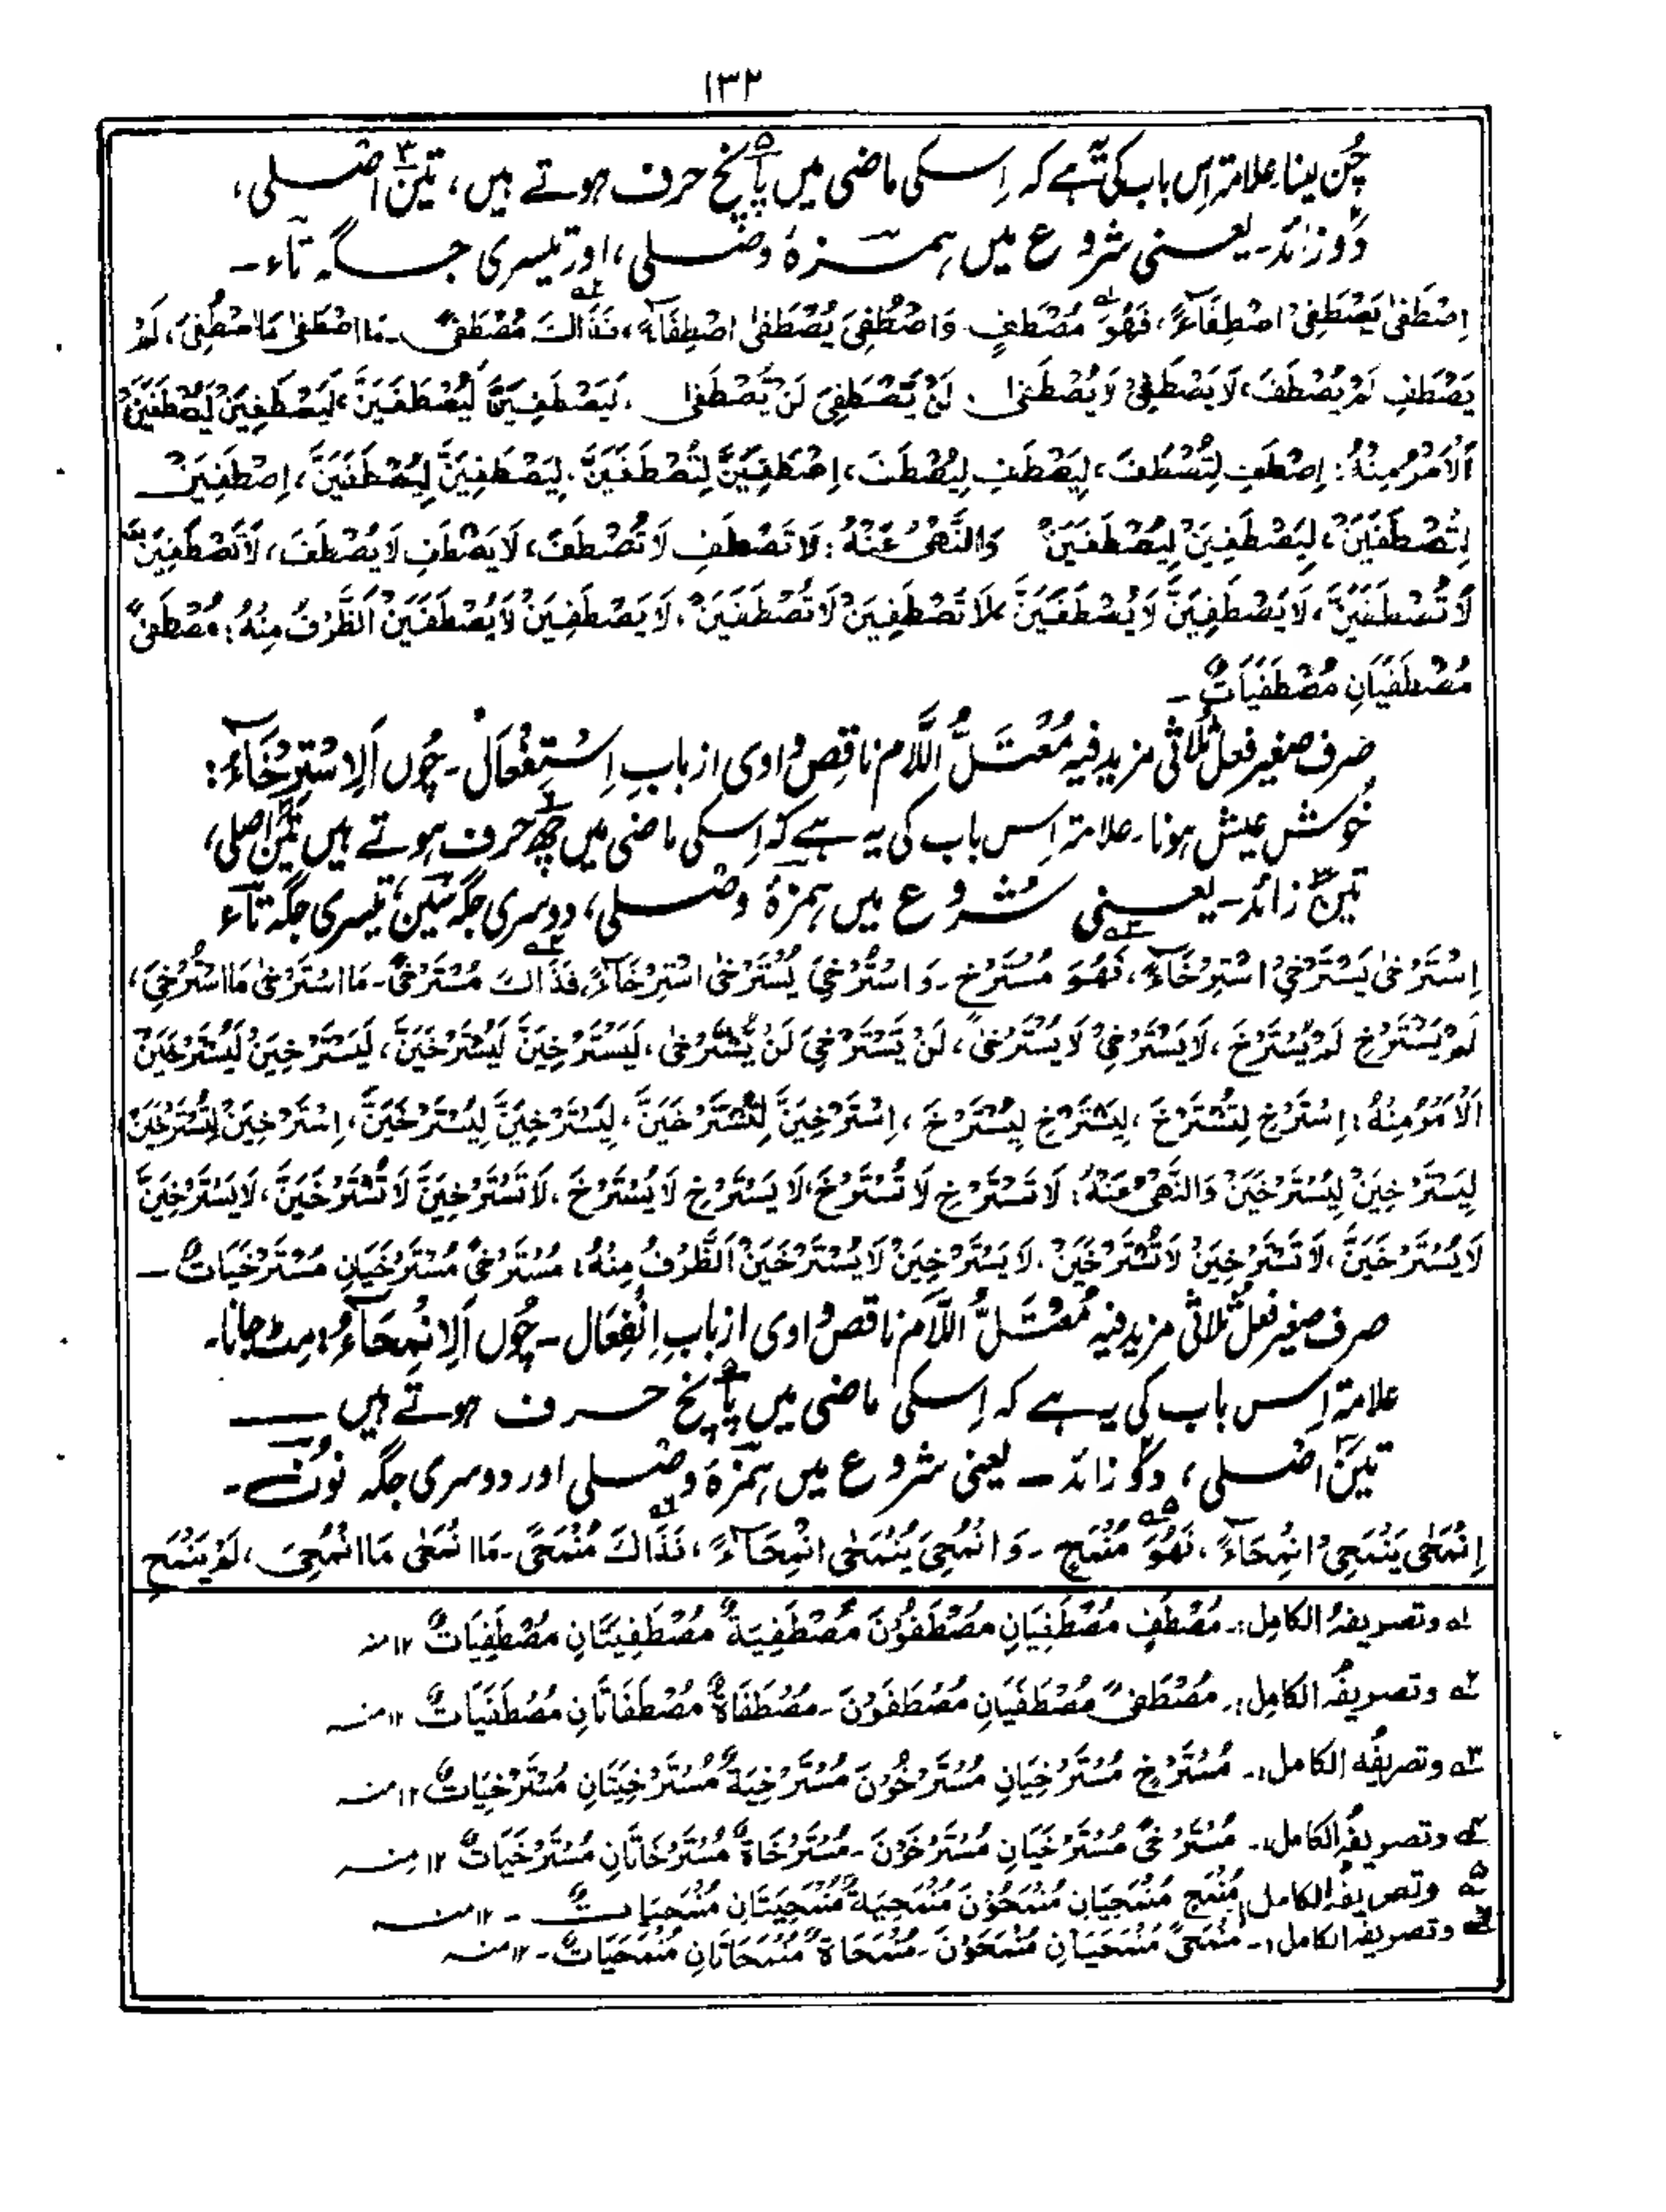 ۱۳۲
چُن لینا۔ علامۃ اِس باب کی یہ ہے کہ اِسکی ماضی میں پانچ حرف ہوتے ہیں، تین اصلی،
دُو زائد۔ یعنی شروع میں ہمزۂ وصلی، اور تیسری جگہ تاء۔
اِصْطَفٰی یَصْطَفِیْ اصْطِفَآءً، فَهُوَ مُصْطَفٍ وَاصْطُفِیَ یُصْطَفٰی اصْطِفَآءً، فَذَاكَ مُصْطَفًی۔ مَا اصْطَفٰی مَا اصْطُفِیَ، لَمْ
یَصْطَفِ لَمْ یُصْطَفَ، لَا یَصْطَفِیْ لَا یُصْطَفٰی، لَنْ یَّصْطَفِیَ لَنْ یُّصْطَفٰی، لَیَصْطَفِیَنَّ لَیُصْطَفَیَنَّ، لَیَصْطَفِیَنْ لَیُصْطَفَیَنْ
اَلْاَمْرُ مِنْهُ: اِصْطَفِ لِتُصْطَفَ، لِیَصْطَفِ لِیُصْطَفَ، اِصْطَفِیَنَّ لِتُصْطَفَیَنَّ، لِیَصْطَفِیَنَّ لِیُصْطَفَیَنَّ، اِصْطَفِیَنْ
لِتُصْطَفَیَنْ، لِیَصْطَفِیَنْ لِیُصْطَفَیَنْ وَالنَّهْیُ عَنْهُ: لَا تَصْطَفِ لَا تُصْطَفَ، لَا یَصْطَفِ لَا یُصْطَفَ، لَا تَصْطَفِیَنَّ
لَا تُصْطَفَیَنَّ، لَا یَصْطَفِیَنَّ لَا یُصْطَفَیَنَّ، لَا تَصْطَفِیَنْ لَا تُصْطَفَیَنْ، لَا یَصْطَفِیَنْ لَا یُصْطَفَیَنْ اَلظَّرْفُ مِنْهُ: مُصْطَفًی
مُصْطَفَیَانِ مُصْطَفَیَاتٌ۔
صرف صغیر فعل ثُلاثی مزید فیہ مُعْتَلُّ اللَّام ناقِص وَاوی از بابِ اِسْتِفْعَالْ۔ چُوں اَلْاِسْتِرْخَآءُ:
خُوش عیش ہونا۔ علامۃ اِس باب کی یہ ہے کہ اِسکی ماضی میں چھ حرف ہوتے ہیں تین اصلی،
تین زائد۔ یعنی شروع میں ہمزۂ وصلی، دوسری جگہ سین، تیسری جگہ تآء
اِسْتَرْخٰی یَسْتَرْخِیْ اسْتِرْخَآءً، فَهُوَ مُسْتَرْخٍ۔ وَاسْتُرْخِیَ یُسْتَرْخٰی اسْتِرْخَآءً، فَذَاكَ مُسْتَرْخًی۔ مَا اسْتَرْخٰی مَا اسْتُرْخِیَ،
لَمْ یَسْتَرْخِ لَمْ یُسْتَرْخَ، لَا یَسْتَرْخِیْ لَا یُسْتَرْخٰی، لَنْ یَّسْتَرْخِیَ لَنْ یُّسْتَرْخٰی، لَیَسْتَرْخِیَنَّ لَیُسْتَرْخَیَنَّ، لَیَسْتَرْخِیَنْ لَیُسْتَرْخَیَنْ
اَلْاَمْرُ مِنْهُ: اِسْتَرْخِ لِتُسْتَرْخَ، لِیَسْتَرْخِ لِیُسْتَرْخَ، اِسْتَرْخِیَنَّ لِتُسْتَرْخَیَنَّ، لِیَسْتَرْخِیَنَّ لِیُسْتَرْخَیَنَّ، اِسْتَرْخِیَنْ لِتُسْتَرْخَیَنْ،
لِیَسْتَرْخِیَنْ لِیُسْتَرْخَیَنْ وَالنَّهْیُ عَنْهُ: لَا تَسْتَرْخِ لَا تُسْتَرْخَ، لَا یَسْتَرْخِ لَا یُسْتَرْخَ، لَا تَسْتَرْخِیَنَّ لَا تُسْتَرْخَیَنَّ، لَا یَسْتَرْخِیَنَّ
لَا یُسْتَرْخَیَنَّ، لَا تَسْتَرْخِیَنْ لَا تُسْتَرْخَیَنْ، لَا یَسْتَرْخِیَنْ لَا یُسْتَرْخَیَنْ اَلظَّرْفُ مِنْهُ: مُسْتَرْخًی مُسْتَرْخَیَانِ مُسْتَرْخَیَاتٌ۔
صرف صغیر فعل ثُلاثی مزید فیہ مُعْتَلُّ اللَّام ناقص وَاوی از بابِ اِنْفِعَال۔ چُوں اَلْاِنْمِحَآءُ: مِٹ جانا۔
علامۃ اِس باب کی یہ ہے کہ اِسکی ماضی میں پانچ حرف ہوتے ہیں
تین اصلی، دُو زائد۔ یعنی شروع میں ہمزۂ وصلی اور دوسری جگہ نون۔
اِنْمَحٰی یَنْمَحِیْ انْمِحَآءً، فَهُوَ مُنْمَحٍ۔ وَانْمُحِیَ یُنْمَحٰی انْمِحَآءً، فَذَاكَ مُنْمَحًی۔ مَا انْمَحٰی مَا انْمُحِیَ، لَمْ یَنْمَحِ
۱ وتصریفہُ الکامل:۔ مُصْطَفٍ مُصْطَفِیَانِ مُصْطَفُوْنَ مُصْطَفِیَةٌ مُصْطَفِیَتَانِ مُصْطَفِیَاتٌ ۱۲ منہ
۲ وتصریفہُ الکامل:۔ مُصْطَفًی مُصْطَفَیَانِ مُصْطَفَوْنَ۔ مُصْطَفَاةٌ مُصْطَفَاتَانِ مُصْطَفَیَاتٌ ۱۲ منہ
۳ وتصریفہُ الکامل:۔ مُسْتَرْخٍ مُسْتَرْخِیَانِ مُسْتَرْخُوْنَ مُسْتَرْخِیَةٌ مُسْتَرْخِیَتَانِ مُسْتَرْخِیَاتٌ ۱۲ منہ
۴ وتصریفہُ الکامل:۔ مُسْتَرْخًی مُسْتَرْخَیَانِ مُسْتَرْخَوْنَ۔ مُسْتَرْخَاةٌ مُسْتَرْخَاتَانِ مُسْتَرْخَیَاتٌ ۱۲ منہ
۵ وتصریفہُ الکامل:۔ مُنْمَحٍ مُنْمَحِیَانِ مُنْمَحُوْنَ مُنْمَحِیَةٌ مُنْمَحِیَتَانِ مُنْمَحِیَاتٌ۔ ۱۲ منہ
۶ وتصریفہُ الکامل:۔ مُنْمَحًی مُنْمَحَیَانِ مُنْمَحَوْنَ۔ مُنْمَحَاةٌ مُنْمَحَاتَانِ مُنْمَحَیَاتٌ۔ ۱۲ منہ